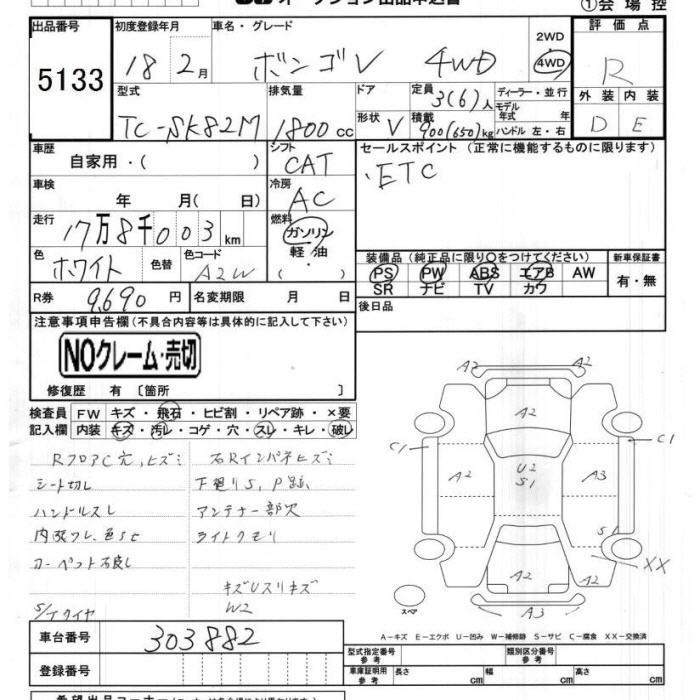 オークション出品申込書 ①会場控
出品番号 5133
初度登録年月 18 2月
車名・グレード ボンゴV 4WD
2WD
4WD
評価点 R
外装 内装
D E
型式 TC-SK82M
排気量 1800cc
ドア
形状 V
定員 3(6)人
積載 900(650)kg
ディーラー・並行
モデル年式 年
ハンドル 左・右
車歴 自家用・( )
シフト CAT
セールスポイント (正常に機能するものに限ります)
・ETC
車検 年 月( 日)
冷房 AC
走行 17万8千003km
燃料
ガソリン
軽油
( )
色 ホワイト 色替 色コード A2W
装備品 (純正品に限り○をつけてください)
PS PW ABS エアB AW
SR ナビ TV カワ
新車保証書
有・無
R券 9,690円 名変期限 月 日
後日品
注意事項申告欄 (不具合内容等は具体的に記入して下さい)
NOクレーム・売切
修復歴 有 〔箇所 〕
検査員 FW キズ・飛石・ヒビ割・リペア跡・×要
記入欄 内装 キズ・汚レ・コゲ・穴・スレ・キレ・破レ
RフロアC穴、ヒズミ 右Rインパネヒズミ
シート切レ 下廻りS、P跡
ハンドルスレ アンテナ一部欠
ライトクモリ
カーペット不良
キズUスリキズ
W2
S/Tタイヤ
A2 A2
A2
C1 C1
A2 U2 S1 A3
S1
XX
A2 A2
スペア
A3
A-キズ E-エクボ U-凹み W-補修跡 S-サビ C-腐食 XX-交換済
車台番号 303882
登録番号
型式指定番号 参考
類別区分番号 参考
車庫証明用 参考 長さ cm 幅 cm 高さ cm